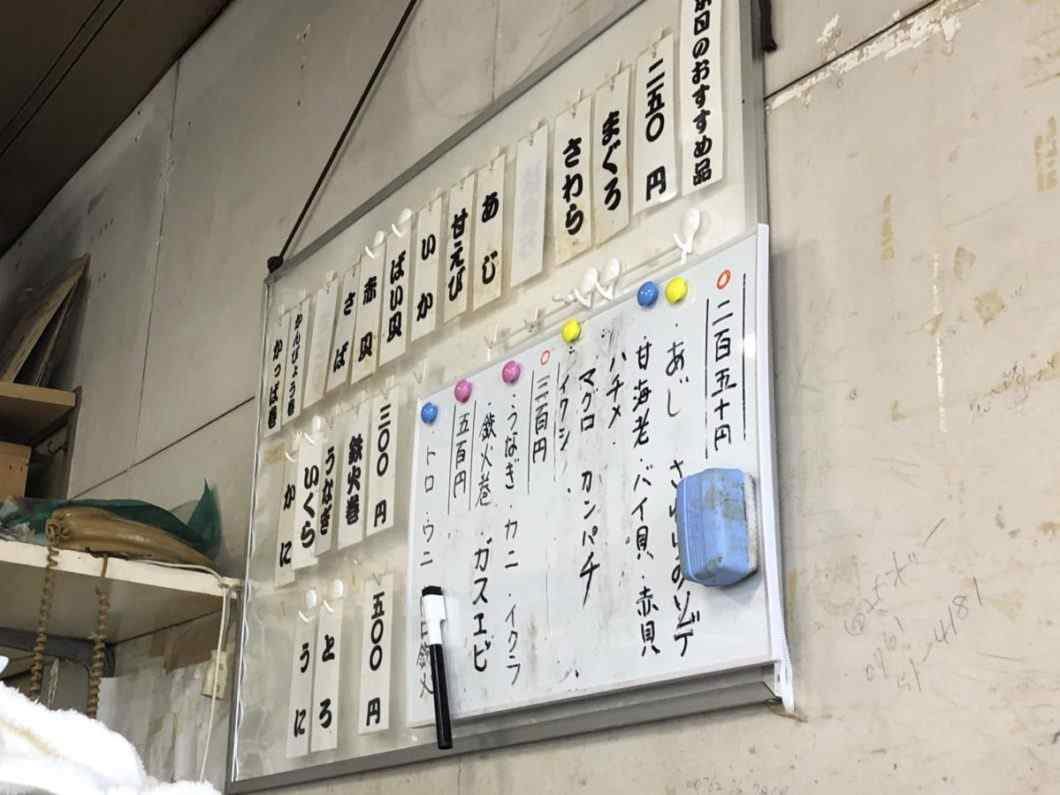 日のおすすめ品
二五〇円
まぐろ
さわら
あじ
甘えび
いか
ばい貝
赤貝
さば
かんぴょう巻
かっぱ巻
三〇〇円
鉄火巻
うなぎ
いくら
かに
五〇〇円
とろ
うに
二百五十円
・あじ
・甘海老・バイ貝・赤貝
・ハチメ
・マグロ カンパチ
・イワシ
三百円
・うなぎ・カニ・イクラ
・鉄火巻・ガスエビ
五百円
・トロ・ウニ